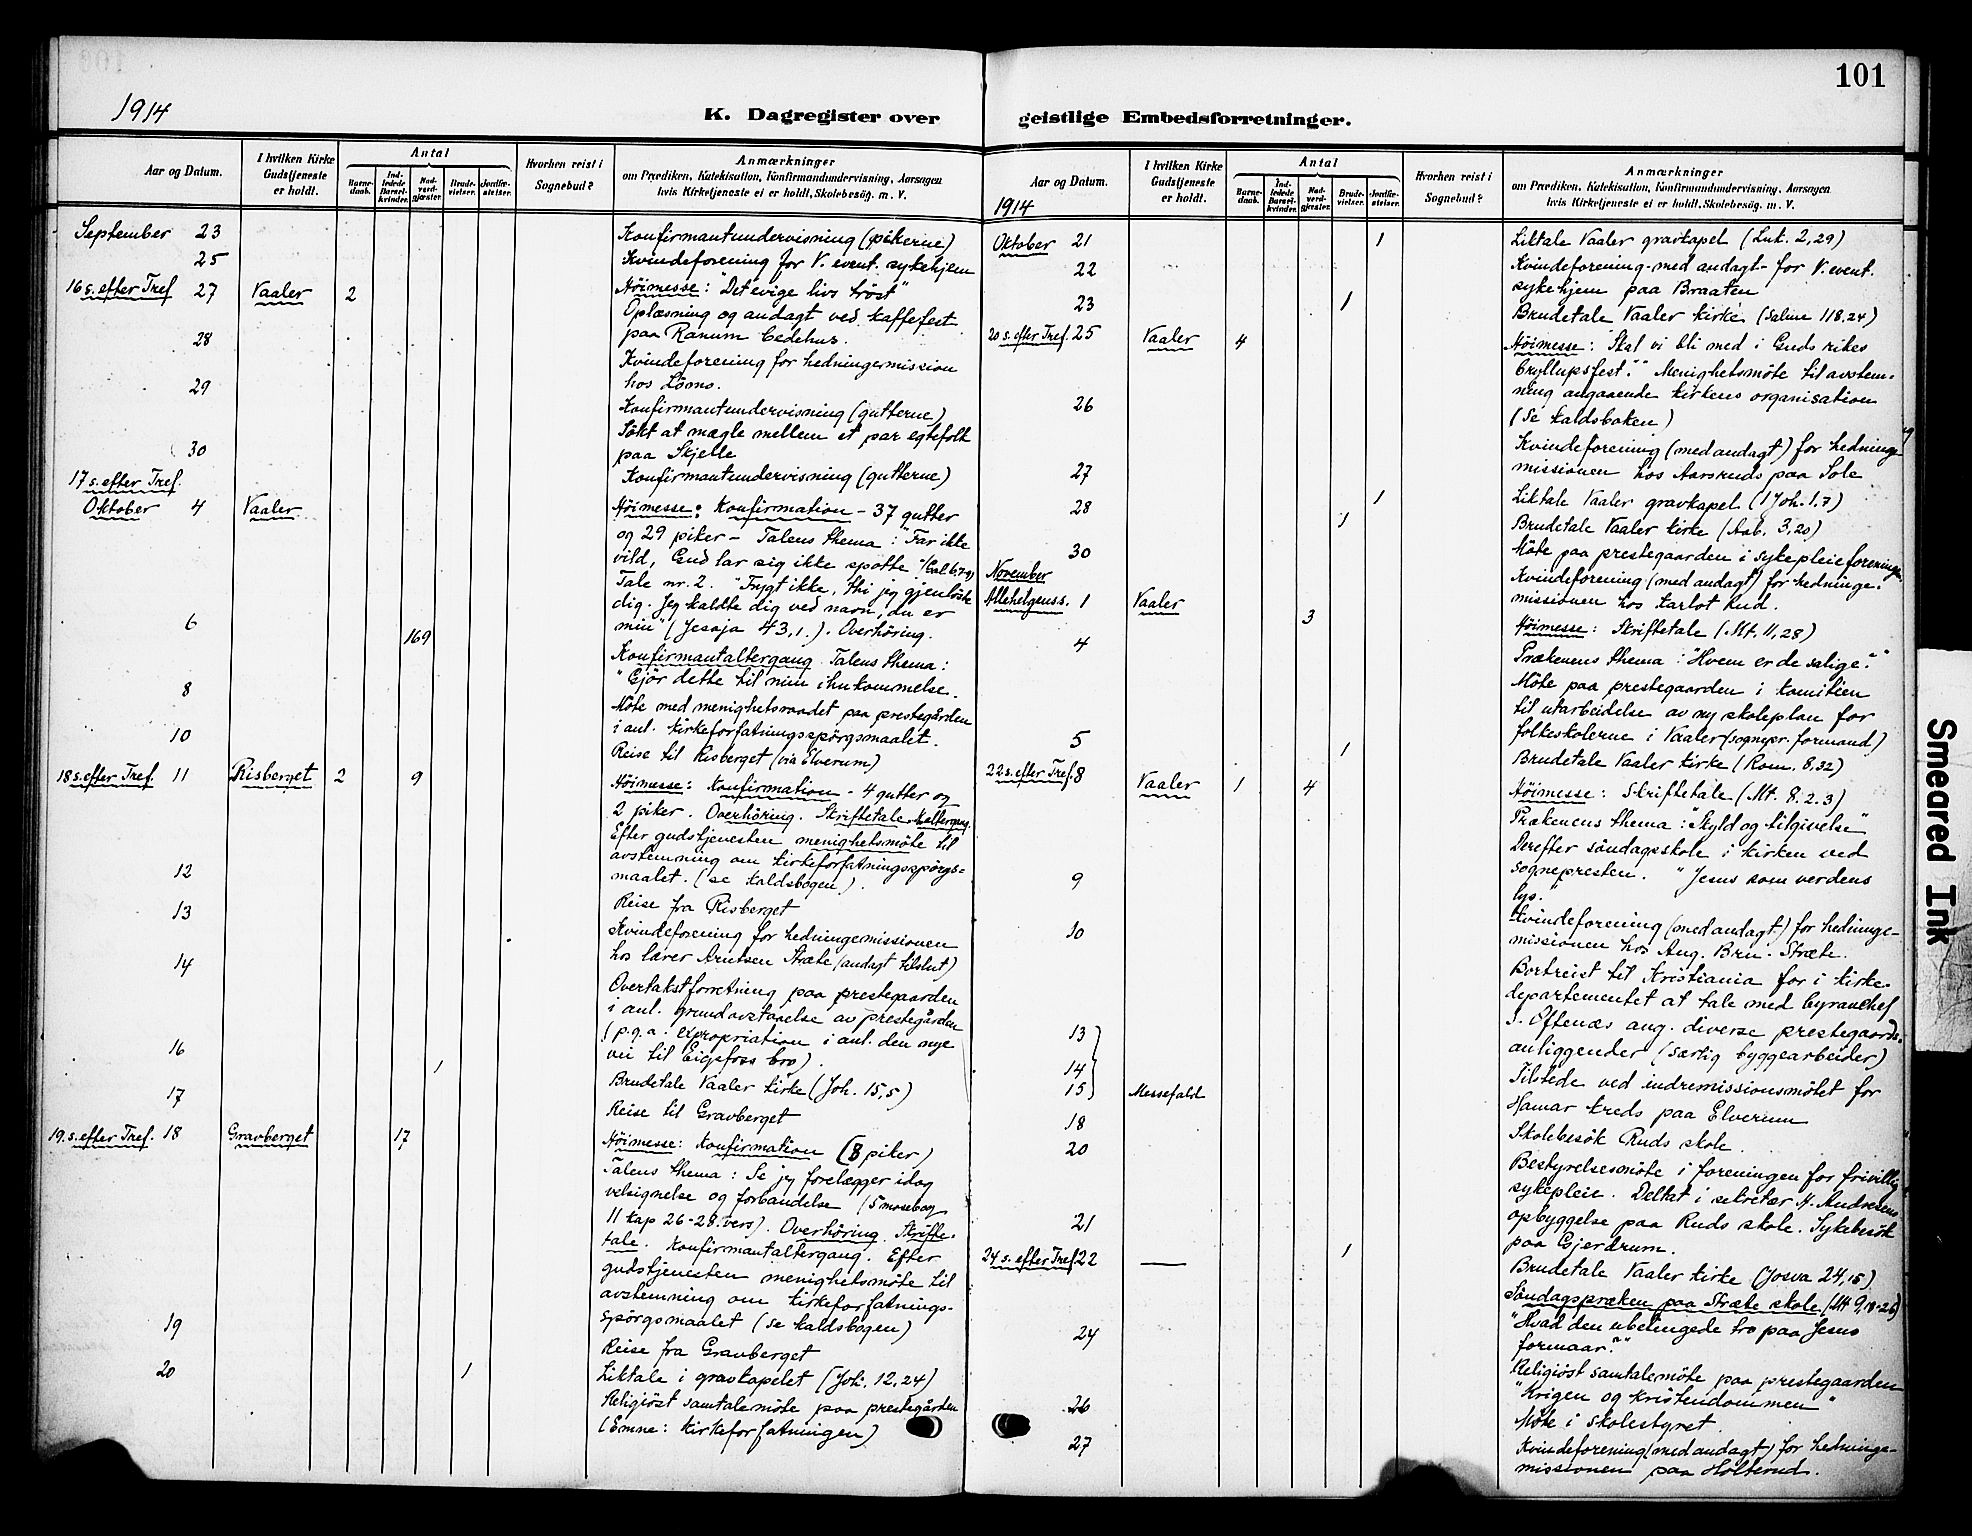 101
1914
K. Dagregister over
geistlige Embedsforretninger.
Aar og Datum.
I hvilken Kirke Gudstjeneste er holdt.
Antal
Barne-daab.
Ind-ledede Barsel-kvinder.
Nad-verd-gjæster.
Brude-vielser.
Jordfæ-stelser.
Hvorhen reist i Sognebud?
Anmærkninger
om Prædiken, Katekisation, Konfirmandundervisning, Aarsagen
hvis Kirketjeneste ei er holdt, Skolebesøg. m. V.
September 23
Konfirmantundervisning (pikerne)
25
Kvindeforening for V. event. sykehjem
16 s. efter Tref. 27 Vaaler 2
Höimesse: "Det evige livs tröst"
Oplæsning og andagt ved kaffefest
paa Ranum bedehus.
28
Kvindeforening for hedningemission
hos Lömo.
29
Konfirmantundervisning (gutterne)
Sökt at mægle mellem et par egtefolk
paa Skjelle
30
Konfirmantundervisning (gutterne)
17 s. efter Tref.
Oktober 4 Vaaler
Höimesse: Konfirmation - 37 gutter
og 29 piker - Talens thema: "Far ikke
vild, Gud lar sig ikke spotte" (Gal 6,7-9)
Tale nr. 2. "Frygt ikke, thi jeg gjenlöste
dig. Jeg kaldte dig ved navn, du er
min" (Jesaja 43,1.). Overhöring.
6 169
Konfirmantaltergang. Talens thema:
"Gjör dette til min ihukommelse.
8
Möte med menighetsraadet paa prestegården
i anl. kirkeforfatningsspörgsmaalet.
10
Reise til Risberget (via Elverum)
18 s. efter Tref. 11 Risberget 2 9
Höimesse: Konfirmation - 4 gutter og
2 piker. Overhöring. Skriftetale. Altergang.
Efter gudstjenesten menighetsmöte til
avstemning om kirkeforfatningsspörgs-
maalet. (se kaldsbogen).
12
Reise fra Risberget
13
Kvindeforening for hedningemissionen
hos lærer Arntsen Stræte (andagt tilslut)
14
Overtakstforretning paa prestegaarden
i anl. grundavstaaelse av prestegården
(p.g.a. expropriation i anl. den nye
vei til Eigsfoss bro).
16 1
Brudetale Vaaler kirke (Joh. 15,5)
17
Reise til Gravberget
19. s. efter Tref. 18 Gravberget 17
Höimesse: Konfirmation (8 piker)
Talens thema: Se jeg forelægger idag
velsignelse og forbandelse (5 mosebog
11 kap 26-28. vers). Overhöring. Skrifte-
tale. Konfirmantaltergang. Efter
gudstjenesten menighetsmöte til
avstemning om kirkeforfatnings-
spörgsmaalet (se kaldsbogen)
19
Reise fra Gravberget
20 1
Liktale i gravkapelet (Joh. 12,24)
Religiöst samtalemöte paa prestegården
(Emne: kirkeforfatningen)
Aar og Datum.
1914
I hvilken Kirke Gudstjeneste er holdt.
Antal
Barne-daab.
Ind-ledede Barsel-kvinder.
Nad-verd-gjæster.
Brude-vielser.
Jordfæ-stelser.
Hvorhen reist i Sognebud?
Anmærkninger
om Prædiken, Katekisation, Konfirmandundervisning, Aarsagen
hvis Kirketjeneste ei er holdt, Skolebesøg. m. V.
Oktober 21 1
Liktale Vaaler gravkapel (Luk. 2,29)
22
Kvindeforening - med andagt - for V. event.
sykehjem paa Braaten
23 1
Brudetale Vaaler kirke (Salme 118.24)
20 s. efter Tref. 25 Vaaler 4
Höimesse: "Skal vi bli med i Guds rikes
bryllupsfest?" Menighetsmöte til avstem-
ning angaaende kirkens organisation
(Se kaldsboken)
26
Kvindeforening (med andagt) for hedninge-
missionen hos Aarsruds paa Sole
27 1
Liktale Vaaler gravkapel (1 Joh. 1.7)
28 1
Brudetale Vaaler kirke (Aab. 3,20)
Möte paa prestegaarden i sykepleieforeningen
30
Kvindeforening (med andagt) for hedninge-
missionen hos Karlot Rud.
November
Allehelgenss. 1 Vaaler 3
Höimesse: Skriftetale (Mt. 11,28)
Prækenens thema: "Hvem er de salige?"
4
Möte paa prestegaarden i komitéen
til utarbeidelse av ny skoleplan for
folkeskolerne i Vaaler (sognepr. formand)
5 1
Brudetale Vaaler kirke (Rom. 8,32)
22 s. efter Tref. 8 Vaaler 1 4
Höimesse: Skriftetale (Mt. 8.2.3)
Prækenens thema: "Skyld og tilgivelse"
Derefter söndagsskole i kirken ved
sognepresten. "Jesus som verdens
lys."
9
Kvindeforening (med andagt) for hedninge-
missionen hos Aug. Bru. Stræte.
10
Bortreist til Kristiania for i kirke-
departementet at tale med byråchef
S. Oftenæs ang. diverse prestegaards-
anliggender (særlig byggearbeider)
13
14
15 Messefald
Tilstede ved indremissionsmötet for
Hamar kreds paa Elverum
18
Skolebesök Ruds skole.
20
Bestyrelsesmöte i foreningen for frivillig
sykepleie. Deltat i sekretær H. Andresens
opbyggelse paa Ruds skole. Sykebesök
paa Gjerdrum.
21 1
Brudetale Vaaler kirke (Josva 24,15)
24 s. efter Tref. 22 —
Söndagspræken paa Stræte skole (Mt 9,18-26)
"Hvad den ubetingede tro paa Jesus
formaar?"
24
Religiöst samtalemöte paa prestegaarden
"Krigen og kristendommen"
26
Möte i skolestyret.
27
Kvindeforening (med andagt) for hedninge-
missionen paa Holterud.
Smeared Ink